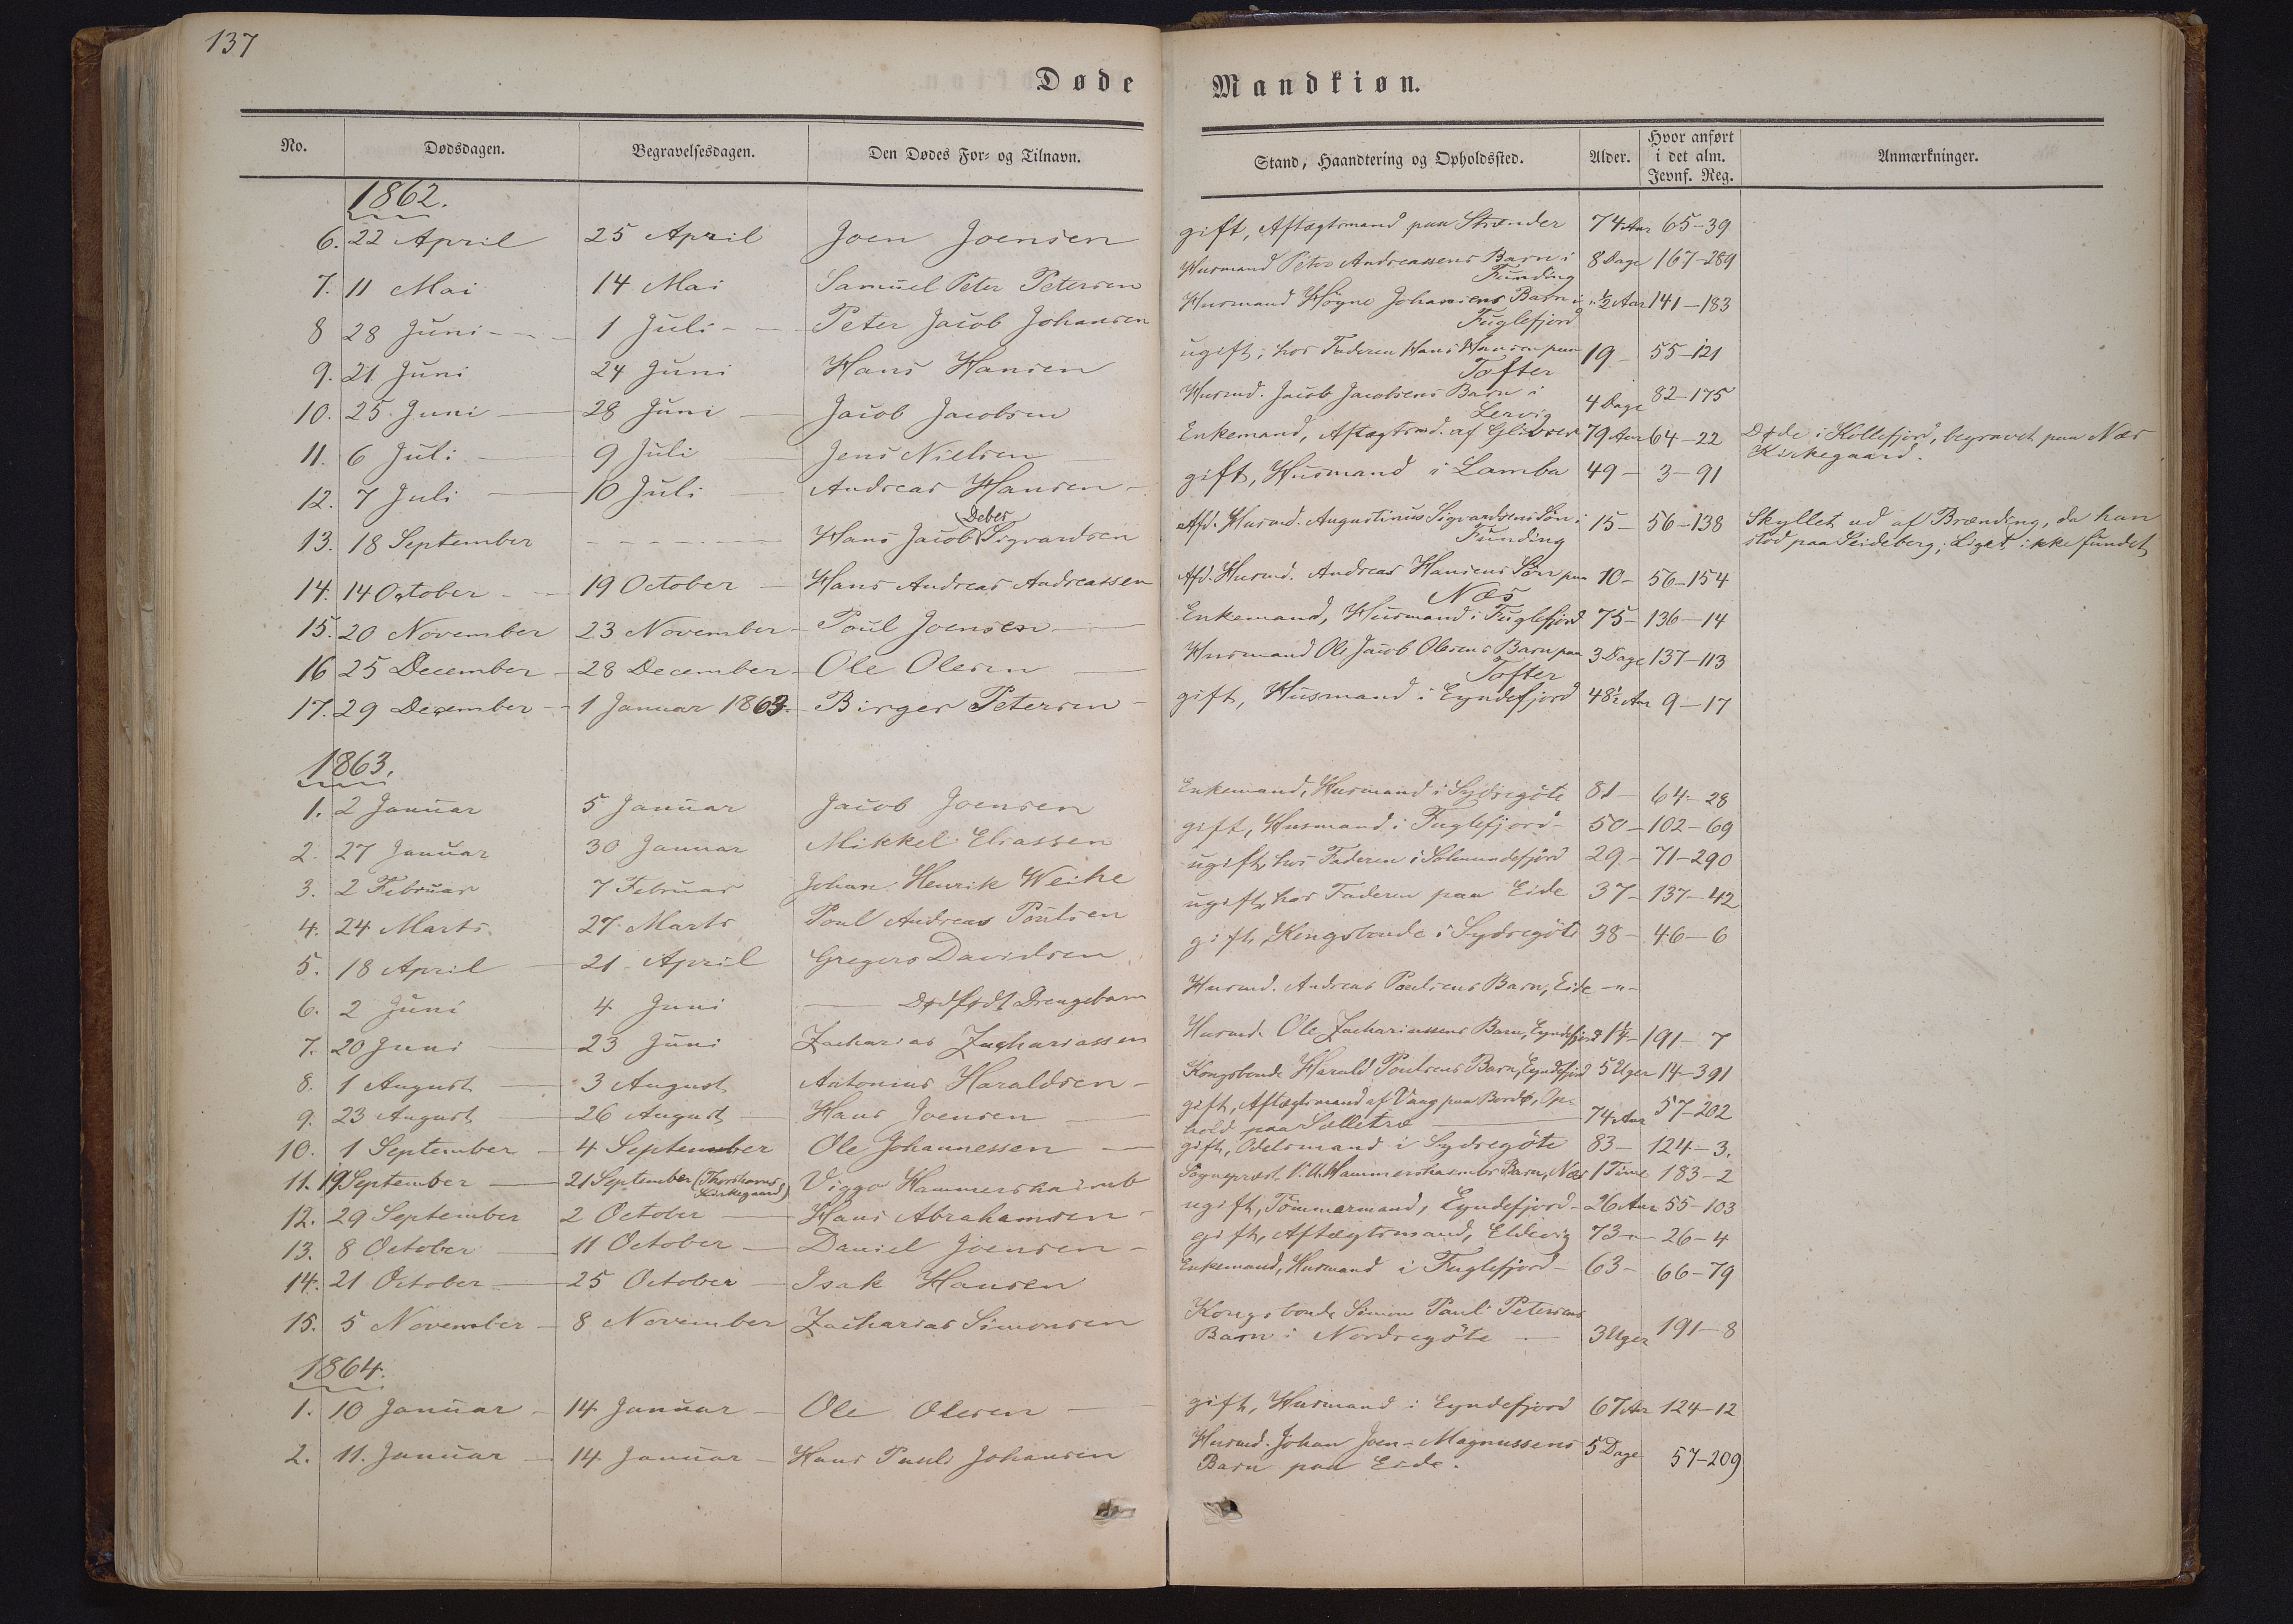 137
Døde Mandkiøn.
No. Dødsdagen. Begravelsesdagen. Den Dødes For- og Tilnavn. Stand, Haandtering og Opholdssted. Alder. Hvor anført i det alm. Jevnf. Reg. Anmærkninger.
1862.
6. 22 April 25 April Joen Joensen gift, Aftægtsmand paa Strænder 74 Aar 65-39
7. 11 Mai 14 Mai Samuel Peter Petersen Husmand Peter Andreassens Barn i Funding 8 Dage 167-289
8 28 Juni 1 Juli Peter Jacob Johansen Husmand Høgne Johansens Barn i Fuglefjord ½ Aar 141-183
9. 21 Juni 24 Juni Hans Hansen ugift, hos Faderen Hans Hansen paa Tofter 19- 55-121
10. 25 Juni 28 Juni Jacob Jacobsen Husmd. Jacob Jacobsens Barn i Lervig 4 Dage 82-175
11. 6 Juli 9 Juli Jens Nielsen Enkemand, Aftægtsmd. af Glibver 79 Aar 64-22 Døde i Kollefjord, begravet paa Næs Kirkegaard.
12. 7 Juli 10 Juli Andreas Hansen gift, Husmand i Lamba 49- 3-91
13. 18 September Hans Jacob Debes Sigvardsen Afd. Husmd. Augustinus Sigvardsens Søn i Funding 15- 56-138 Skyllet ud af Brænding, da han stod paa Seideberg; Liget ikke fundet
14. 14 October 19 October Hans Andreas Andreassen Afd. Husmd. Andreas Hansens Søn paa Næs 10- 56-154
15. 20 November 23 November Poul Joensen Enkemand, Husmand i Fuglefjord 75- 136-14
16 25 December 28 December Ole Olesen Husmand Ole Jacob Olesens Barn paa Tofter 3 Dage 137-113
17. 29 December 1 Januar 1863. Birger Petersen gift, Husmand i Eyndefjord 48½ Aar 9-17
1863.
1. 2 Januar 5 Januar Jacob Joensen Enkemand, Husmand i Sydregöte 81- 64-28
2. 27 Januar 30 Januar Mikkel Eliassen gift, Husmand i Fuglefjord 50- 102-69
3. 2 Februar 7 Februar Johan Henrik Weihe ugift, hos Faderen i Solmundefjord 29- 71-290
4. 24 Marts 27 Marts Poul Andreas Poulsen ugift, hos Faderen paa Eide 37- 137-42
5. 18 April 21 April Gregers Davidsen gift, Kongsbonde i Sydregöte 38- 46-6
6. 2 Juni 4 Juni Dødfødt Drengebarn Husmd. Andreas Poulsens Barn, Eide -"-
7. 20 Juni 23 Juni Zacharias Zachariassen Husmd. Ole Zachariassens Barn, Eyndefjord 1¼- 191-7
8. 1 August 3 August Antonius Haraldsen Kongsbonde Harald Poulsens Barn, Eyndefjord 5 Uger 14-391
9. 23 August 26 August Hans Joensen gift, Aftægtsmand af Vaag paa Bordø, Ophold paa Selletræ 74 Aar 57-202
10. 1 September 4 September Ole Johannessen gift, Odelsmand i Sydregöte 83- 124-3.
11. 19 September 21 September (Thorshavns Kirkegaard) Viggo Hammershaimb Sognepræst V.U. Hammershaimbs Barn, Næs 1 Time 183-2
12. 29 September 2 October Hans Abrahamsen ugift, Tömmermand, Eyndefjord 26 Aar 55-103
13. 8 October 11 October Daniel Joensen gift, Aftægtsmand, Eldevig 73- 26-4
14. 21 October 25 October Isak Hansen Enkemand, Husmand i Fuglefjord 63- 66-79
15. 5 November 8 November Zacharias Simonsen Kongsbonde Simon Paul Petersens Barn i Nordregöte 3 Uger 191-8
1864.
1. 10 Januar 14 Januar Ole Olesen gift, Husmand i Eyndefjord 67 Aar 124-12
2. 11. Januar 14 Januar Hans Pauli Johansen Husmd. Johan Joen-Magnussens Barn paa Eide. 5 Dage 57-209